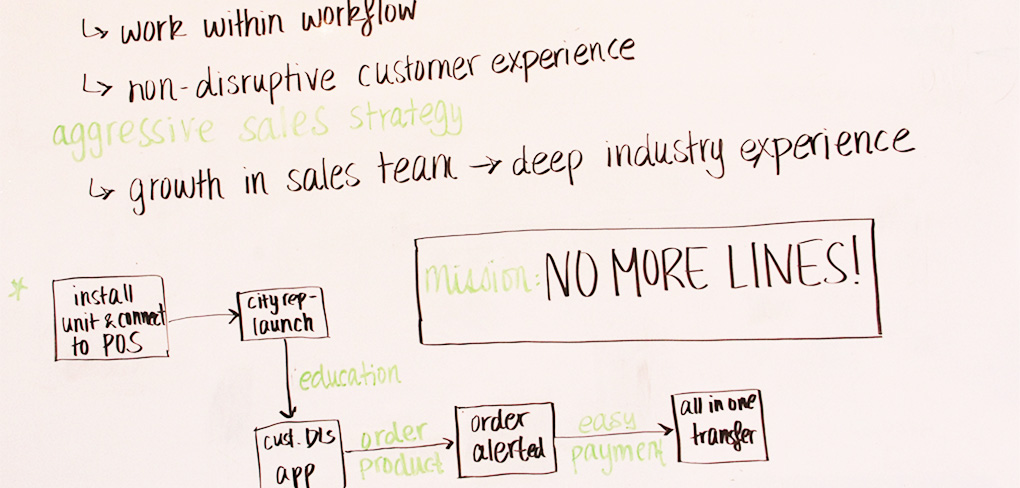 ↳ work within workflow
↳ non-disruptive customer experience
aggressive sales strategy
↳ growth in sales team → deep industry experience
mission: NO MORE LINES!
* install
unit & connect
to POS
city rep-
launch
education
cust. DLs
app
order
product
order
alerted
easy
payment
all in one
transfer